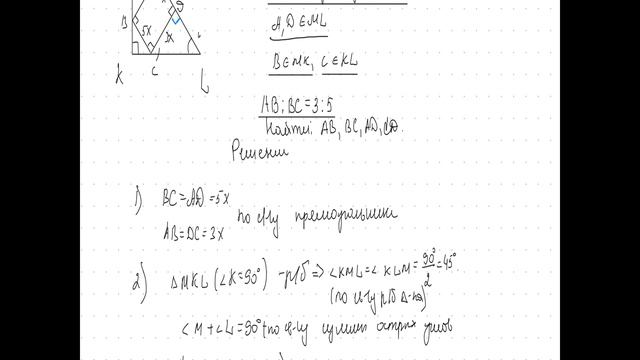 B 5x 3x
K C L
A, D ∈ ML
B ∈ MK, C ∈ KL
AB : BC = 3 : 5
Найти: AB, BC, AD, CD.
Решение
1) BC = AD = 5x
AB = DC = 3x по св-ву прямоугольника
2) △MKL (∠K = 90°) - р/б ⇒ ∠KML = ∠KLM = 90°/2 = 45°
(по св-ву р/б △-ка)
∠M + ∠L = 90° по св-ву суммы острых углов